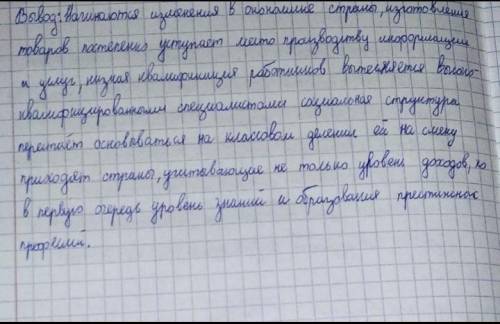 Вывод: Начинаются изменения в экономике страны, изготовления
товаров постепенно уступает место производству информации
и услуг, низкая квалификация работников вытесняется высоко-
квалифицированными специалистами социальная структура
перестаёт основываться на классовом делении ей на смену
приходят страны, учитывающие не только уровень доходов, но
в первую очередь уровень знаний и образования престижност
профессий.